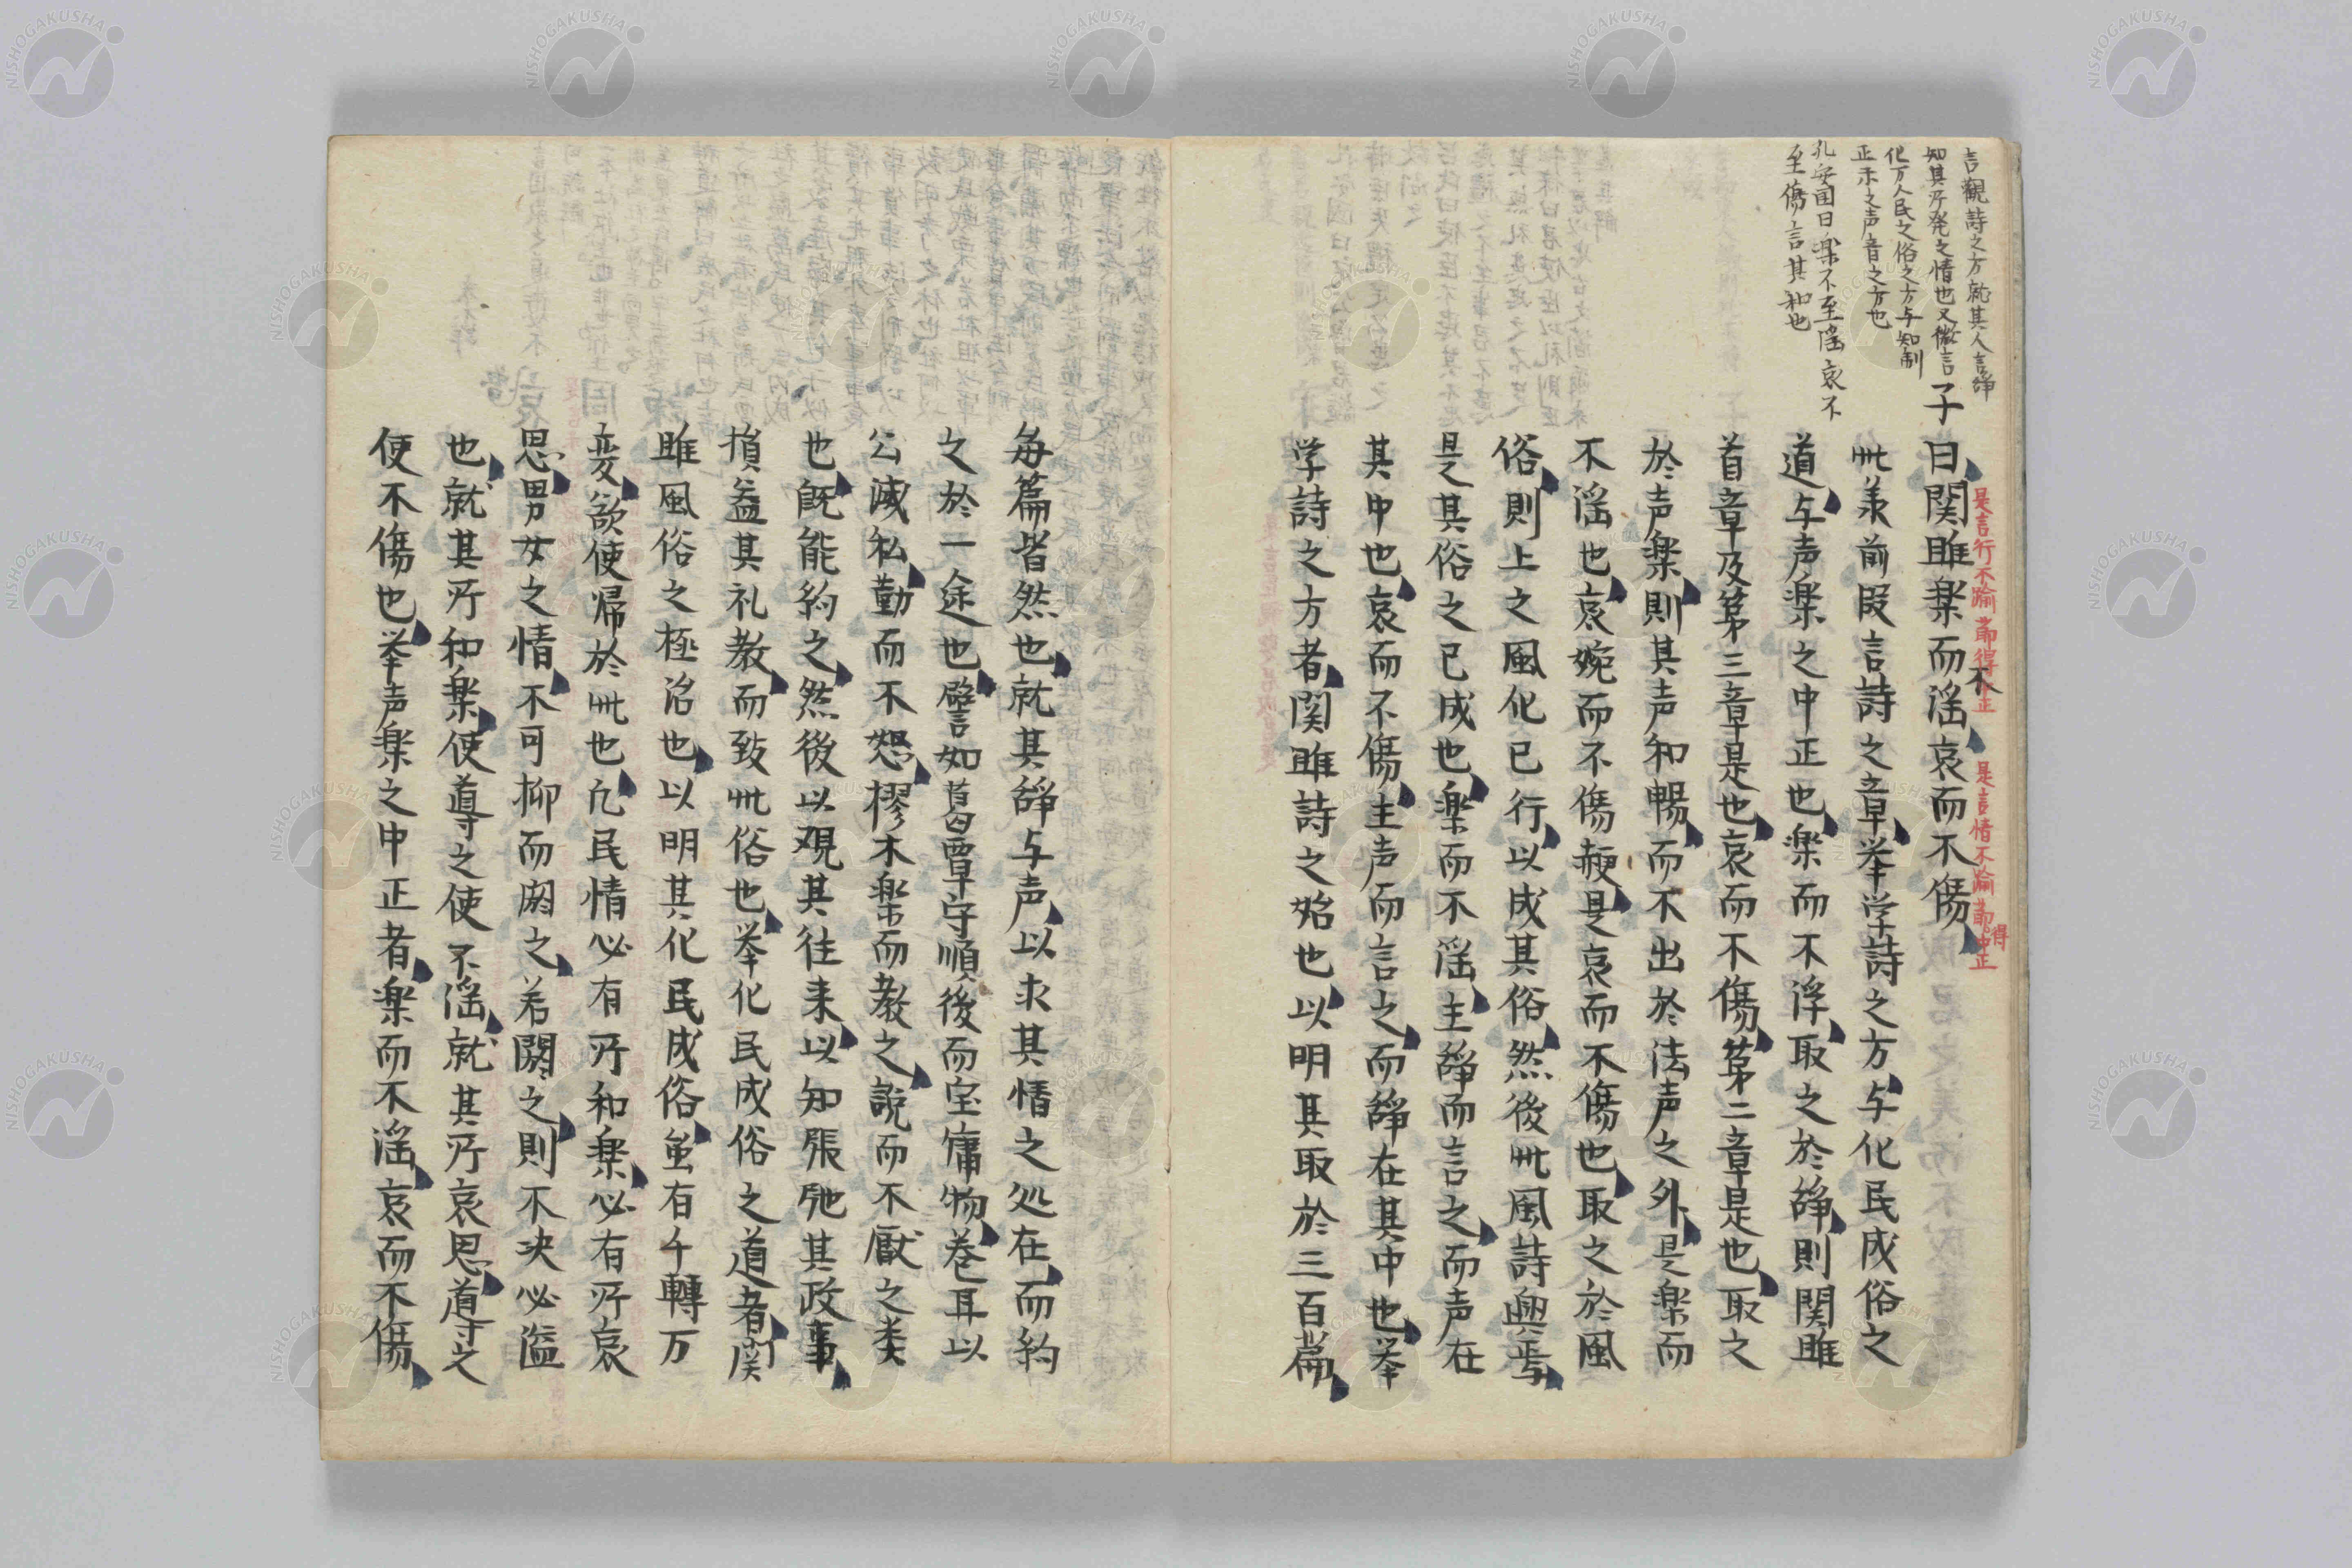 言觀詩之方就其人言諍
知其所発之情也又微言
化万人民之俗之方与知制
正示之声音之方也
孔安国曰楽不至滛哀不
至傷言其和也
子曰関雎楽而不滛哀而不傷
是言行不踰節得中正
是言情不踰節得中正
此羕前段言詩之章挙学詩之方与化民成俗之
道与声楽之中正也楽而不淫取之於諍則関雎
首章及第三章是也哀而不傷第二章是也取之
於声楽則其声和暢而不出於法声之外是楽而
不滛也哀婉而不傷是哀而不傷也取之於風
俗則上之風化已行以成其俗然後此風詩興焉
是其俗之已成也楽而不滛主諍而言之而声在
其中也哀而不傷主声而言之而諍在其中也挙
学詩之方者関雎詩之始也以明其取於三百篇
毎篇皆然也就其諍与声以求其情之処在而約
之於一途也譬如葛覃守順後而宝庸物巻耳以
公滅私勤而不怨樛木楽而教之説而不厭之类
也既能約之然後以観其往来以知張弛其政事
損益其礼教而致此俗也挙化民成俗之道者関
雎風俗之極治也以明其化民成俗虽有千轉万
変欲使帰於此也凢民情必有所和楽必有所哀
思男女之情不可抑而閼之若閼之則不决必溢
也就其所和楽使導之使不滛就其所哀思導之
使不傷也挙声楽之中正者楽而不滛哀而不傷
NISHOGAKUSHA